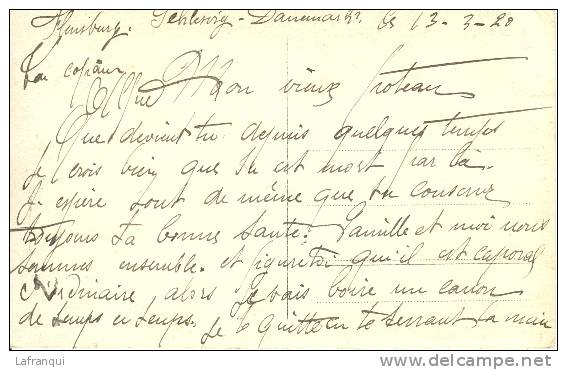 Flensburg. Schleswig - Danemark. le 13-3-20
Ton copain
Mon vieux Proteau
Que devient tu depuis quelques temps
Je crois bien que tu est mort par là.
J'espère tout de même que tu conserve
toujours ta bonne santé. Camille et moi nous
sommes ensemble. et figure toi qu'il est caporal
d'ordinaire alors je vais boire un canon
de temps en temps. Je te quitte en te serrant la main
Lafranqui
delcampe.net